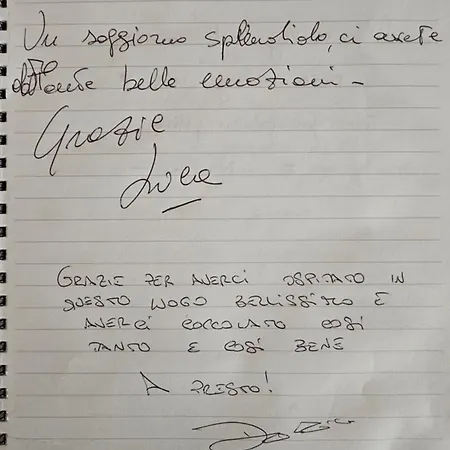 Un soggiorno splendido, ci avete
dato tante belle emozioni -
Grazie
Luca
GRAZIE PER AVERCI OSPITATO IN
QUESTO LUOGO BELLISSIMO E
AVERCI COCCOLATO COSÌ
TANTO E COSÌ BENE
A PRESTO!